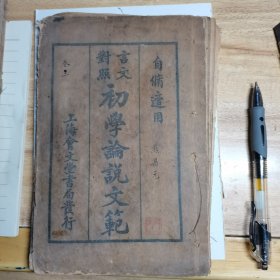 自脩適用
言文
對照
初學論説文範
上海會文堂書局發行